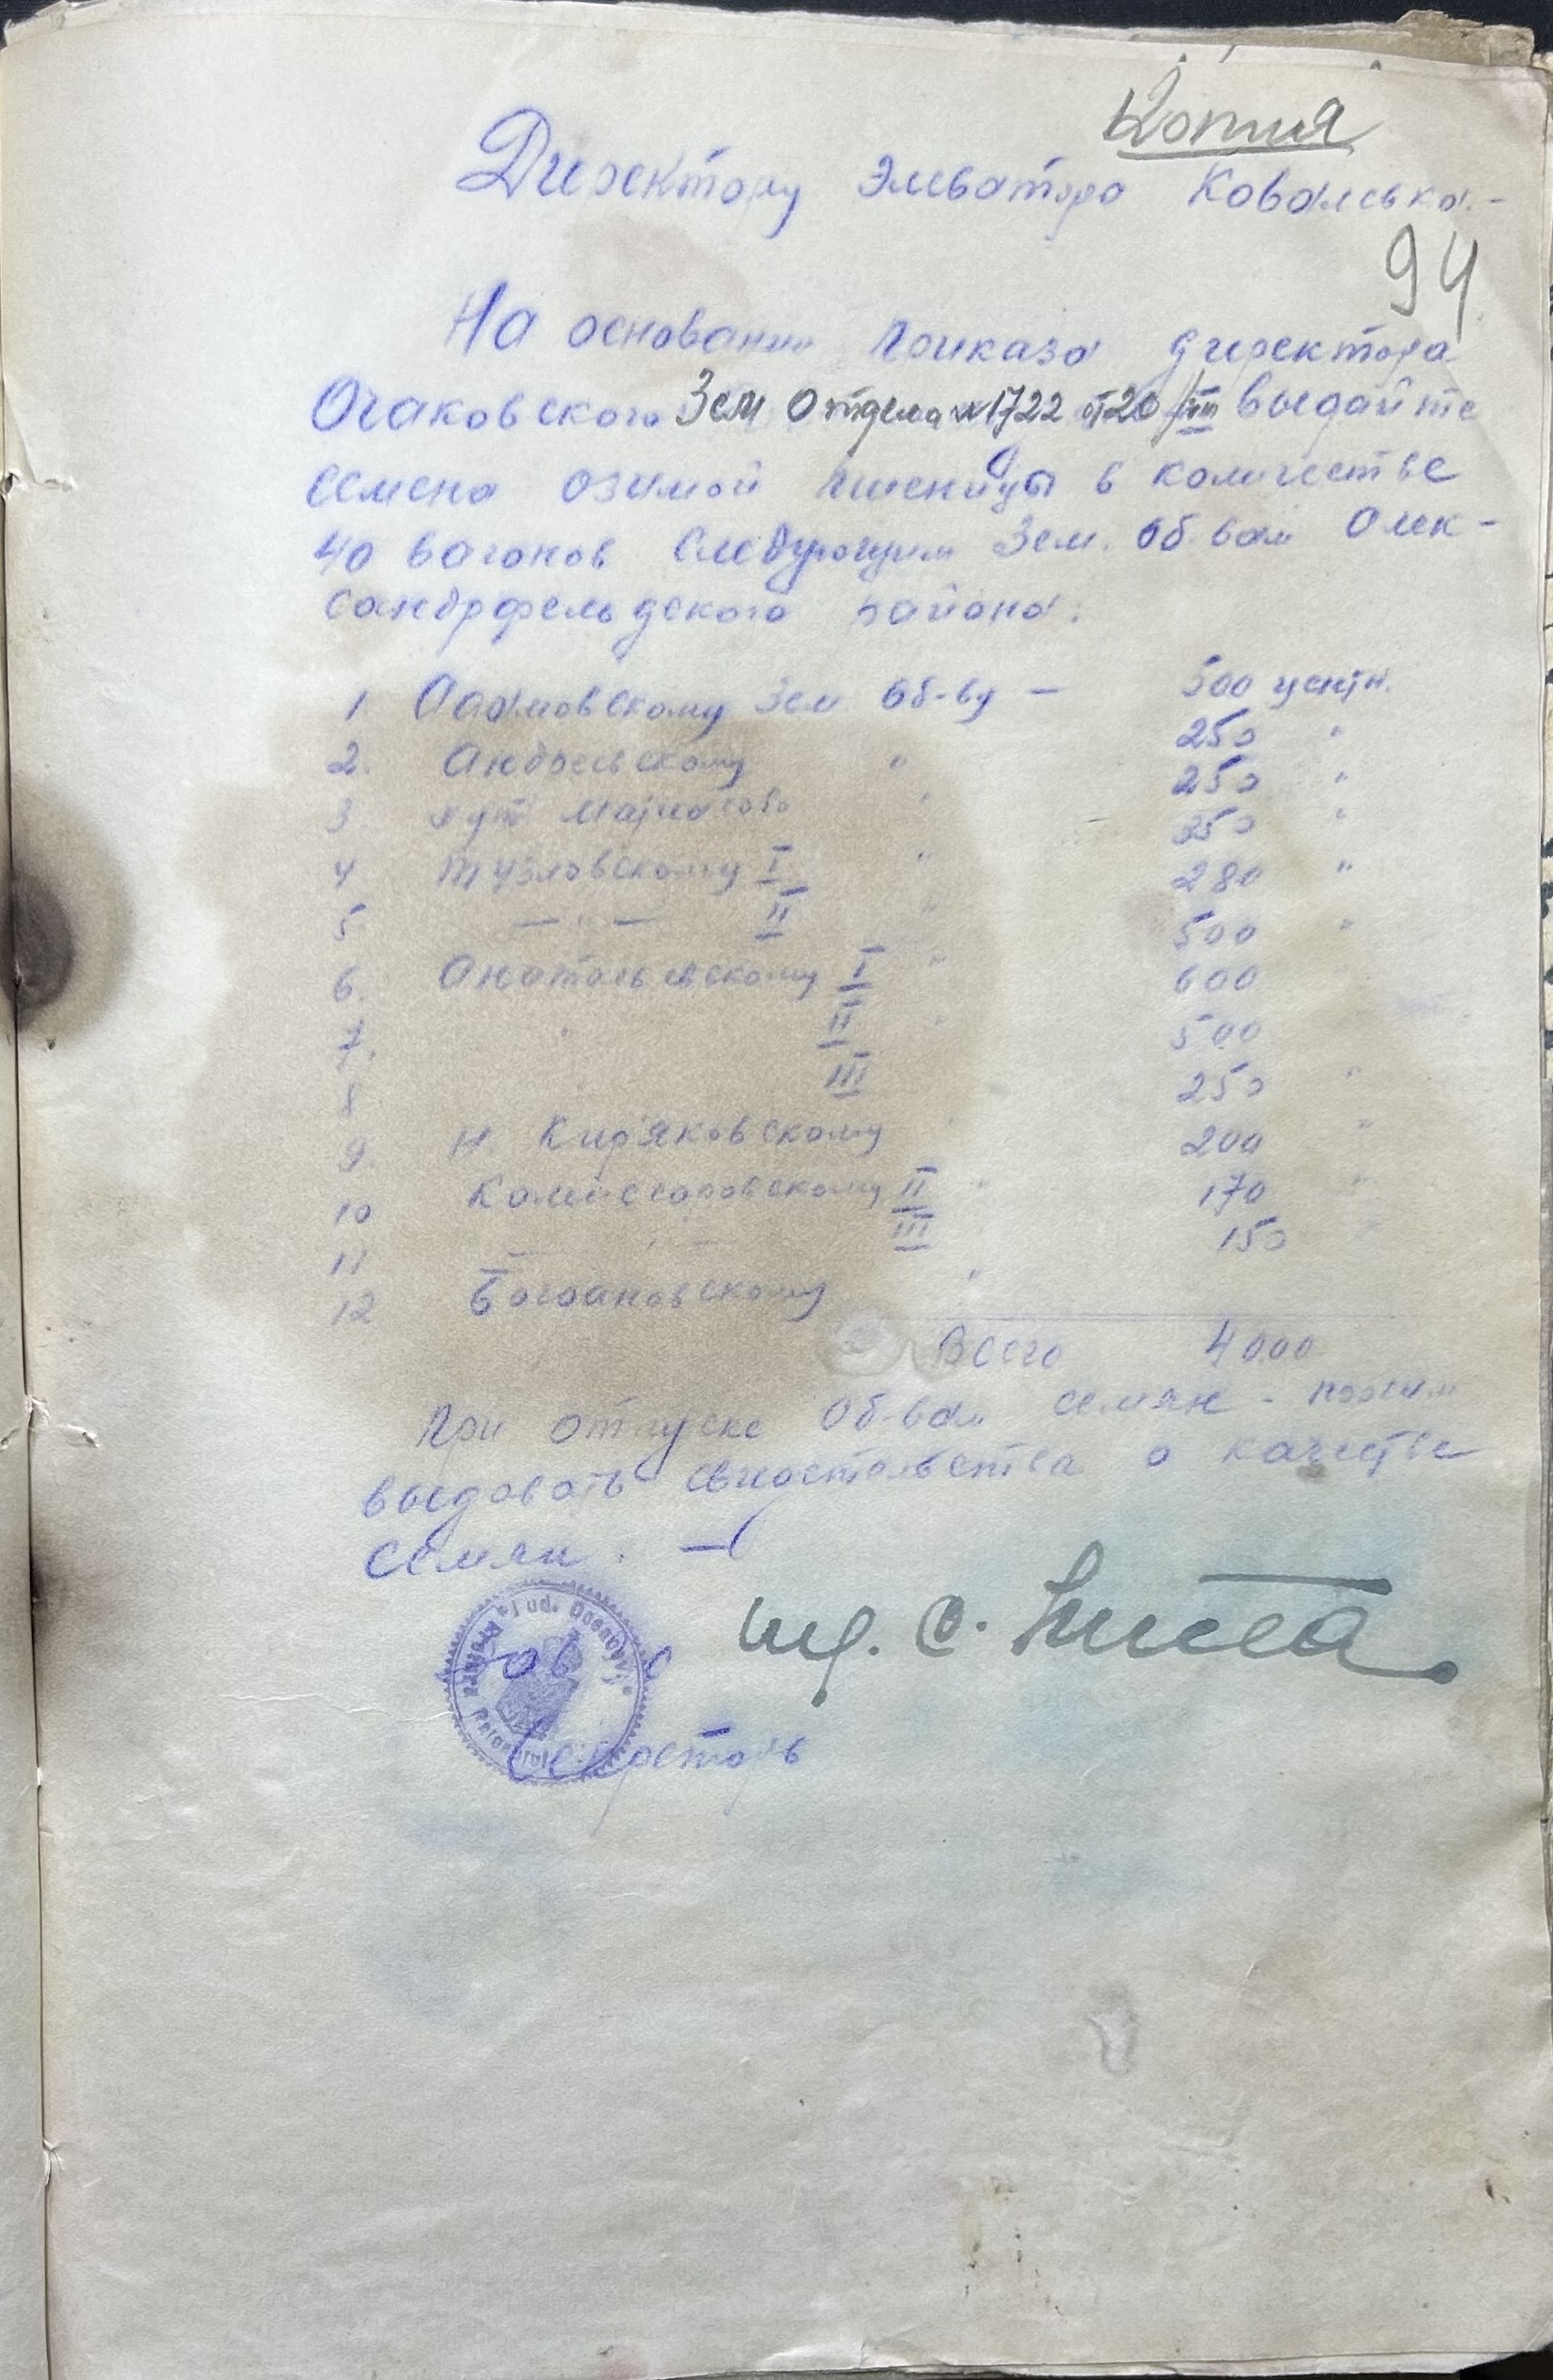 Копия
Директору Элеватора Ковалевка.-
94
На основании приказа директора
Очаковского Зем Отдела №1722 от 20/VIII выдайте
семена озимой пшеницы в количестве
40 вагонов следующим Зем. Об-вам Алек-
сандрфельдского района.
1 Зем Об-ву — 500 центн.
2. Андреевскому " 250 "
3 хут " 250 "
4 Тузловскому I " 250 "
5 — " — II " 280 "
6. Анатольевскому I " 500 "
7. " II " 600
8 III 500
9. Н Кир'яковскому 250 "
10 Комиссаровскому II " 200 "
11 — " — III 170 "
12 Богдановскому " 150
Всего 4000
При отпуске Об-вам семян - просим
выдавать свидетельства о качестве
семян. —
Зав
Секретарь